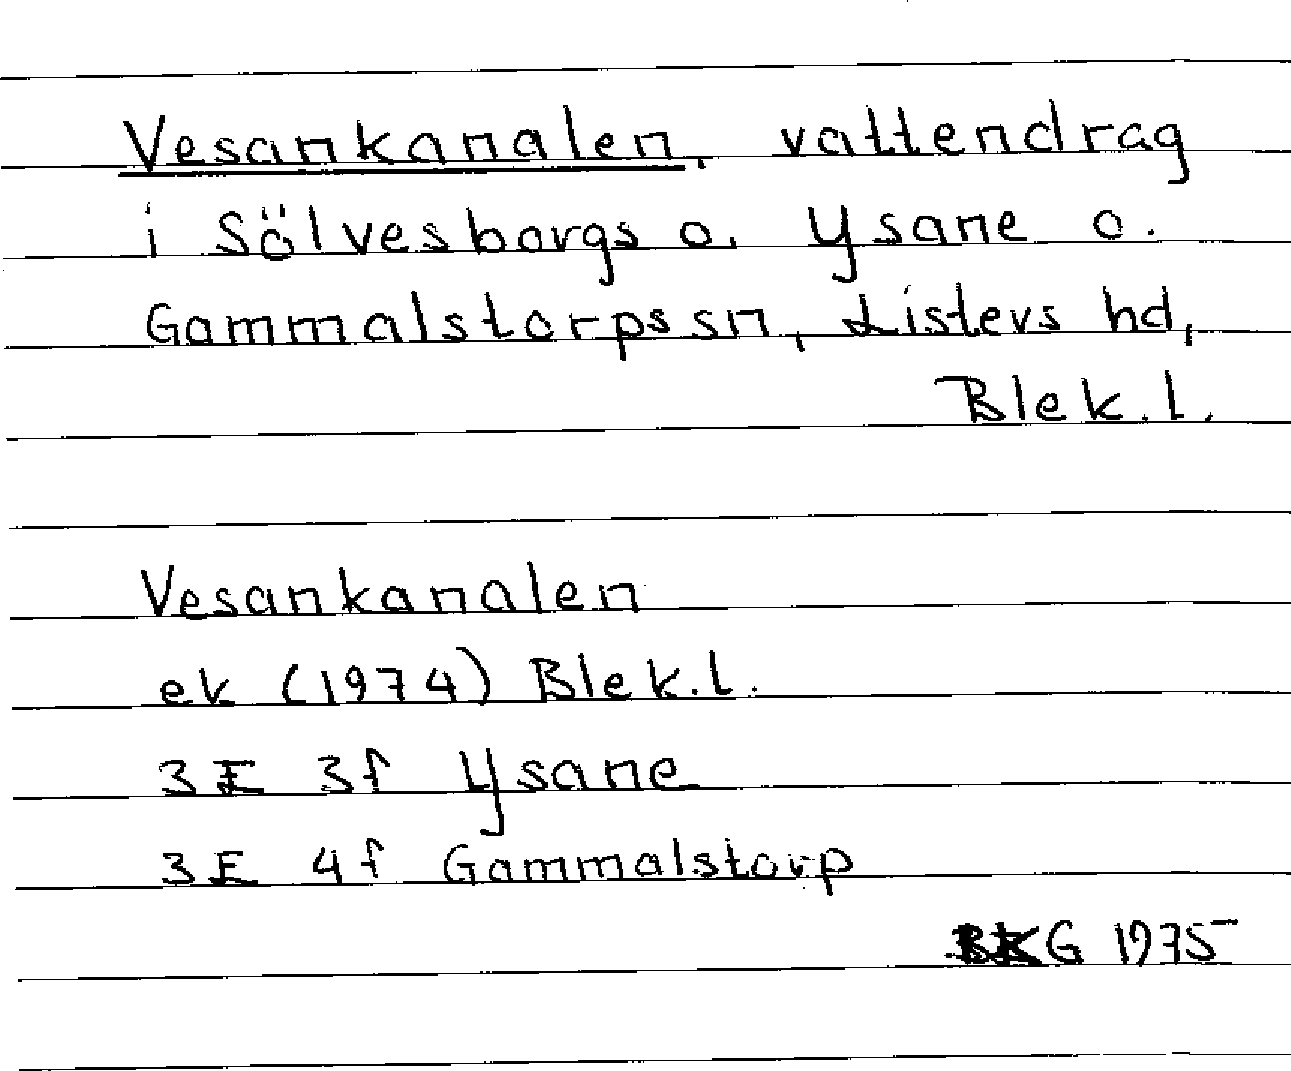 Vesankanalen, vattendrag
i Sölvesborgs o. Ysane o.
Gammalstorps sn, Listers hd,
Blek.l.
Vesankanalen
ek (1974) Blek.l.
3E 3f Ysane
3E 4f Gammalstorp
BKG 1975